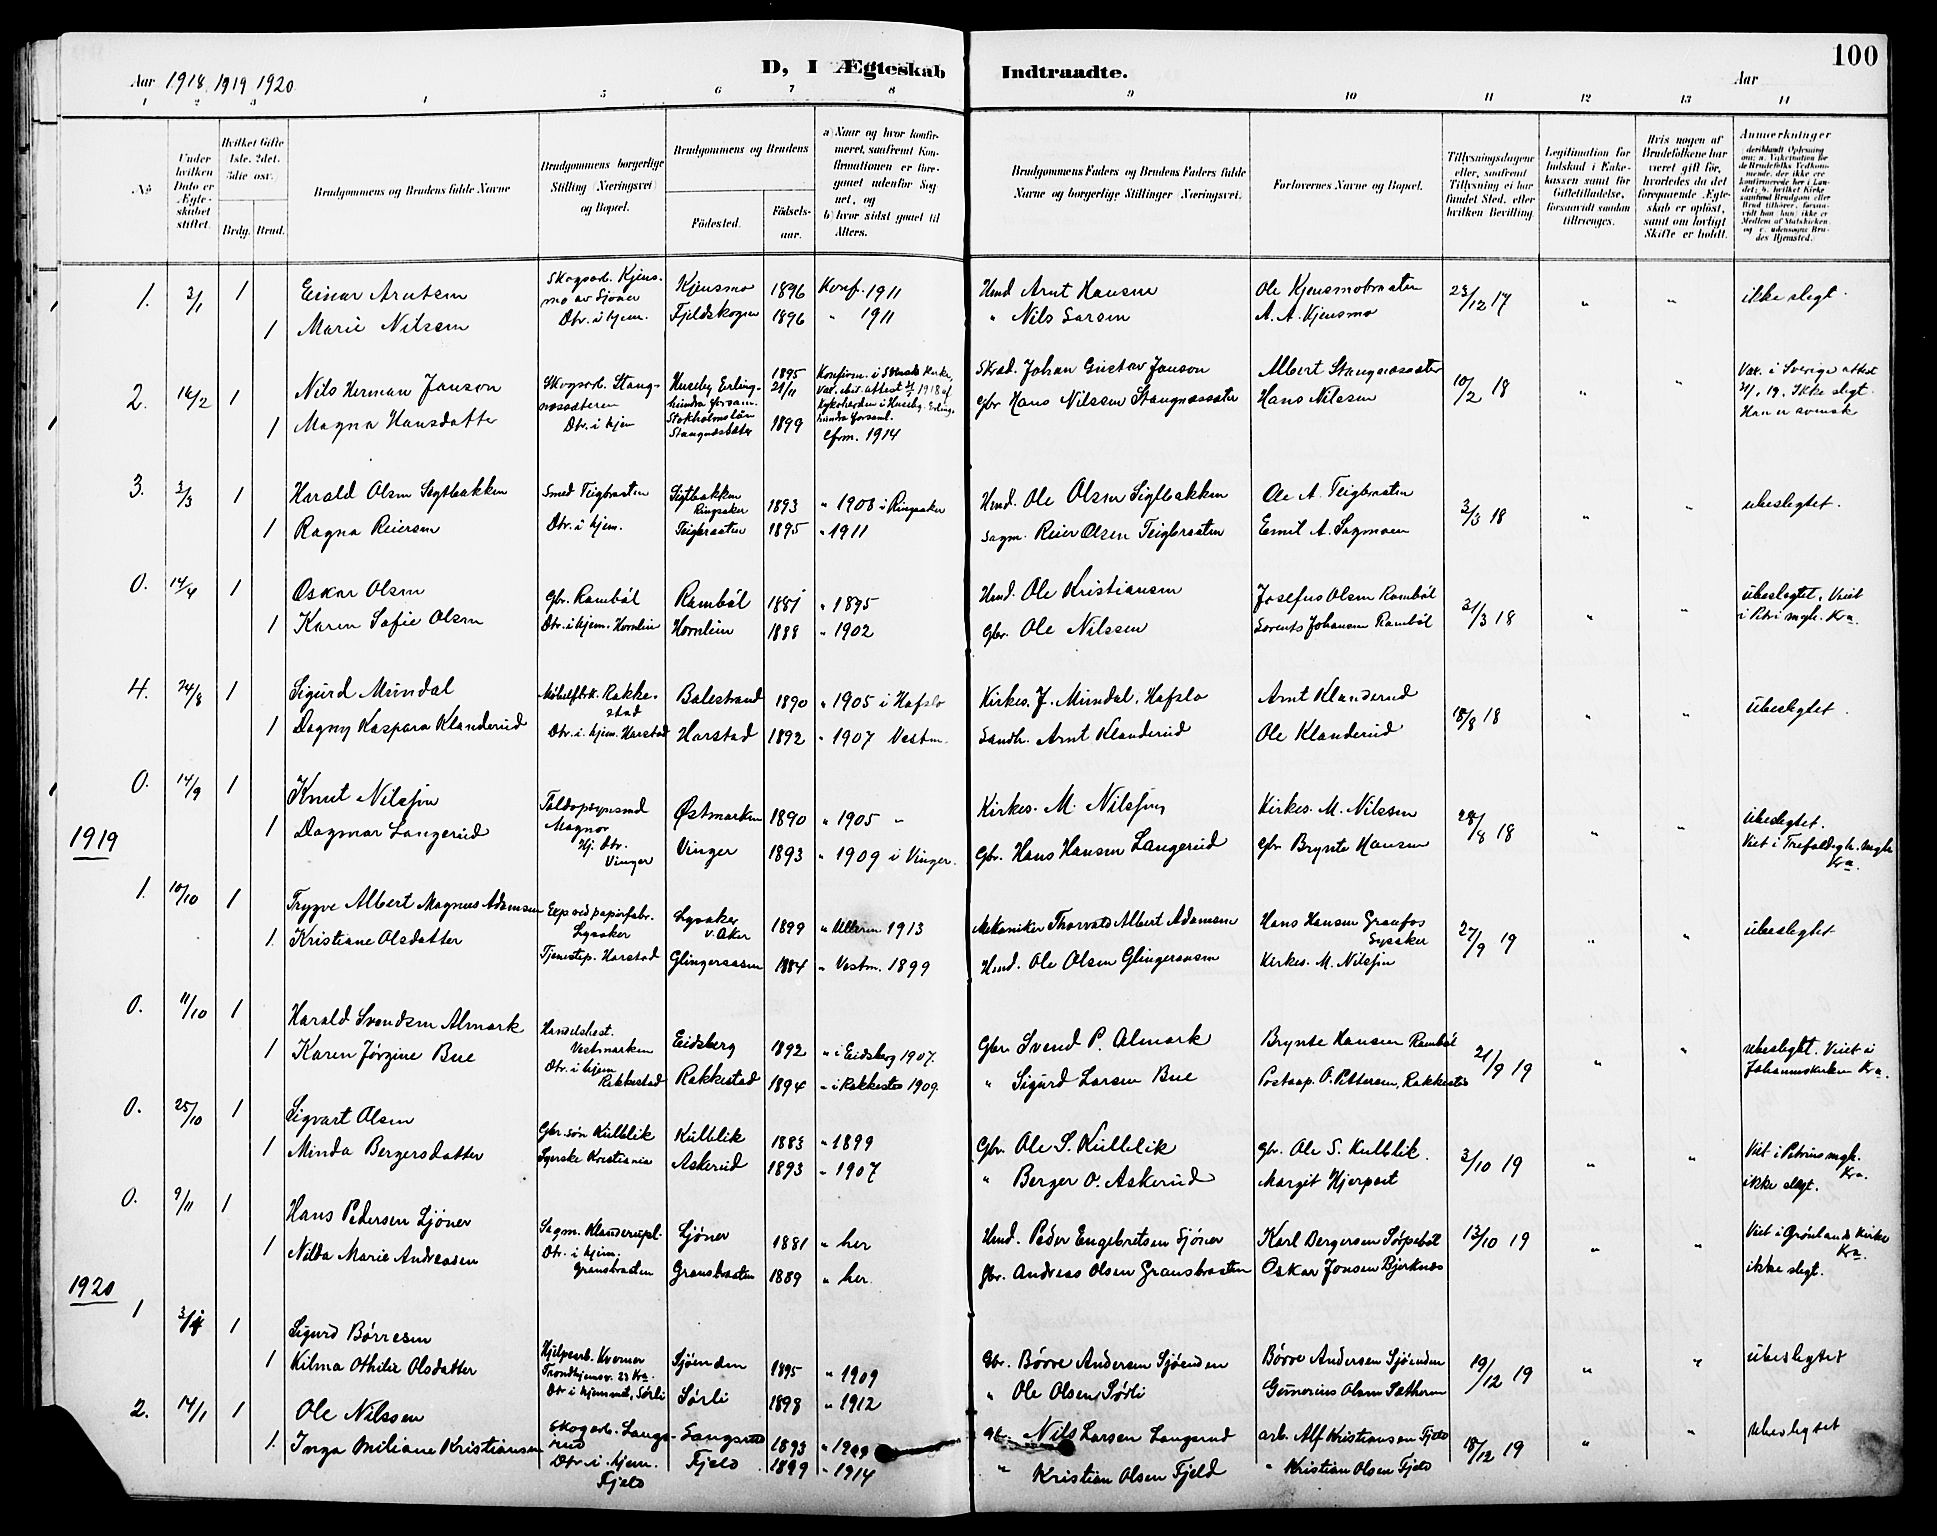 Aar 1918, 1919 1920
D, I Ægteskab Indtraadte.
Aar
100
1 2 3 4 5 6 7 8 9 10 11 12 13 14
No
Under hvilken Dato er Ægteskabet stiftet.
Hvilket Gifte 1ste. 2det. 3die osv.
Brdg. Brud.
Brudgommens og Brudens fulde Navne
Brudgommens borgerlige Stilling (Næringsvei) og Bopæl.
Brudgommens og Brudens
Fødested.
Fødselsaar.
a) Naar og hvor konfirmeret, saafremt Konfirmationen er foregaaet udenfor Sognet, og
b) hvor sidst gaaet til Alters.
Brudgommens Faders og Brudens Faders fulde Navne og borgerlige Stillinger (Næringsvei).
Forlovernes Navne og Bopæl.
Tillysningsdagene eller, saafremt Tillysning ei har fundet Sted, efter hvilken Bevilling.
Legitimation for Indskud i Enkekassen samt for Giftetilladelse, forsaavidt saadan tiltrænges.
Hvis nogen af Brudefolkene har været gift før, hvorledes da det foregaaende Ægteskab er opløst, samt om lovligt Skifte er holdt.
Anmerkninger
1. 3/1 1 Einar Arntsen Skogsarb. Kjensmo av Sjöner Kjensmo 1896 Konf. 1911 Hmd Arnt Hansen Ole Kjensmobraaten 23/12 17 " " ikke slegt.
1 Marie Nilsen Dtr. i hjem. Fjeldskogen 1896 " 1911 " Nils Larsen A. A. Kjensmo
2. 16/2 1 Nils Herman Janson Skogsarb. Stangnæssæteren Huseby Erlinghundra forsam. Stockholmslän 1895 21/11 Konfirm. i Svensk kirke, Skräd. Johan Gustav Janson Albert Stangnæssæter 10/2 18 " Vax. i Sverige attest 21/1. 19. Ikke slegt. Han er svensk
1 Magna Hansdatter Dtr. i hjem Stangnæssæter 1899 Cfrm. 1914 Gbr Hans Nilssen Stangnæssæter Hans Nilssen
3. 3/3 1 Harald Olsen Sigtbakken Smed Teigbraaten Sigtbakken Ringsaker 1893 " 1908 i Ringsaker Hmd. Ole Olsen Sigtbakken Ole A. Teigbraaten 3/3 18 " " ubeslegtet.
1 Ragna Reiersen Dtr. i hjem. Teigbraaten 1895 " 1911 Sagm. Reier Olsen Teigbraaten Emil A. Sagmoen
0. 14/4 1 Oskar Olsen Gbr. Rambøl Rambøl 1881 " 1895 Hmd. Ole Kristiansen Josefus Olsen Rambøl 31/3 18 " " ubeslegtet. Viet i Petri mgh. Kra.
1 Karen Sofie Olsen Dtr. i hjem. Hornlien Hornlien 1888 " 1902 Gbr. Ole Nilssen Lorents Johansen Rambøl
4. 24/8 1 Sigurd Mundal Møbelfbk. Rakkestad Balestrand 1890 " 1905 i Hafslo Kirkes. J. Mundal, Hafslo Arnt Klanderud 18/8 18 " " ubeslegtet.
1 Dagny Kaspara Klanderud Dtr. i hjem. Harstad Harstad 1892 " 1907 Vestm. Landh. Arnt Klanderud Ole Klanderud
0. 14/9 1 Knut Nilssen Toldopsynsmd Magnor Østmarken 1890 " 1905 " Kirkes. M. Nilssen Kirkes. M. Nilssen 28/8 18 " " ubeslegtet.
1 Dagmar Langerud Hj. Dtr. Vinger Vinger 1893 " 1909 i Vinger. Gbr. Hans Hansen Langerud Gbr. Brynte Hansen Viet i Trefoldigh. mgh Kra.
1919
1. 10/10 1 Trygve Albert Magnus Adamsen Exp. ved papirfabr. Lysaker Lysaker v. Aker 1899 " Ullern 1913 Mekaniker Thorvald Albert Adamsen Hans Hansen Graafos Lysaker 27/9 19 " " ubeslegtet
1. Kristiane Olsdatter Tjenestep. Harstad Glingeraasen 1884 " Vestm. 1899 Hmd. Ole Olsen Glingeraasen Kirkes. M. Nilssen
0. 11/10 1 Harald Svendsen Almark Handelsbest. Vestmarken Eidsberg 1892 " i Eidsberg 1907. Gbr. Svend P. Almark Brynte Hansen Rambøl 21/9 19 " " ubeslegtet. Viet i Johanneskirken Kra.
1 Karen Jørgine Bue Dtr. i hjem Rakkestad Rakkestad 1894 " i Rakkestad 1909. " Sigurd Larsen Bue Postaap. O. Pettersen, Rakkestad
0. 25/10 1 Sigvart Olsen Gbr. søn Kulblik Kulblik 1883 " 1899 Gbr. Ole S. Kulblik Gbr. Ole S. Kulblik. 3/10 19 " " Viet i Petrus mgh. Kra.
1 Minda Bergersdatter Syerske Kristiania Askerud 1893 " 1907 " Berger O. Askerud Margit Hjerpset ikke slegt.
0. 9/11 1 Hans Pedersen Sjöner Sagm. Klanderupl. Sjöner 1881 " her Hmd. Peder Engebretsen Sjöner Karl Bergersen Sørpebøl 13/10 19 " " Viet i Grønlands kirke Kra.
1 Nilda Marie Andreasen Dtr. i hjem. Gransbraaten Gransbraaten 1889 " her. Gbr. Andreas Olsen Gransbraaten Oskar Jonsen Bjerknæs ikke slegt.
1920
1 3/1 1 Sigurd Børresen Hjelpearb. Kverner Trondhjemsv. 23 Kra. Sjøenden 1895 " 1909 Gbr. Børre Andersen Sjøenden Børre Andersen Sjøenden 19/12 19 " " ubeslegtet
1 Kilma Othilie Olsdatter Dtr i hjemmet, Sørli Sørli 1898 " 1912 " Ole Olsen Sørli Gunerius Olsen Sætheren
2. 14/1 1 Ole Nilssen Skogarb. Langerud Langerud 1893 " 1909 Gb. Nils Larsen Langerud arb. Alf Kristiansen Fjeld 18/12 19 " " ubeslegtet
1. Inga Miliane Kristiansen Dtr. i hjem. Fjeld Fjeld 1899 " 1914 " Kristian Olsen Fjeld " Kristian Olsen Fjeld